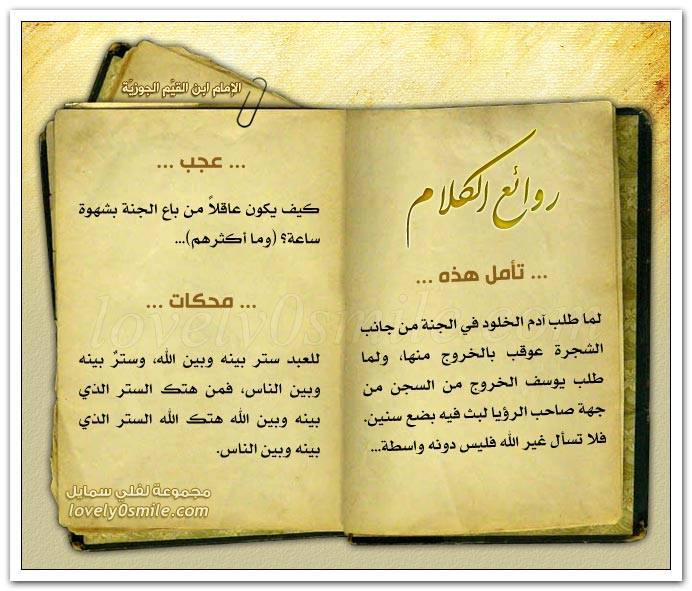 الإمام ابن القيّم الجوزيّة
روائع الكلام
... تأمل هذه ...
لما طلب آدم الخلود في الجنة من جانب
الشجرة عوقب بالخروج منها، ولما
طلب يوسف الخروج من السجن من
جهة صاحب الرؤيا لبث فيه بضع سنين.
فلا تسأل غير الله فليس دونه واسطة...
... عجب ...
كيف يكون عاقلاً من باع الجنة بشهوة
ساعة؟ (وما أكثرهم)...
... محكات ...
للعبد ستر بينه وبين الله، وسترٌ بينه
وبين الناس، فمن هتك الستر الذي
بينه وبين الله هتك الله الستر الذي
بينه وبين الناس.
lovely0smile
مجموعة لفلي سمايل
lovely0smile.com